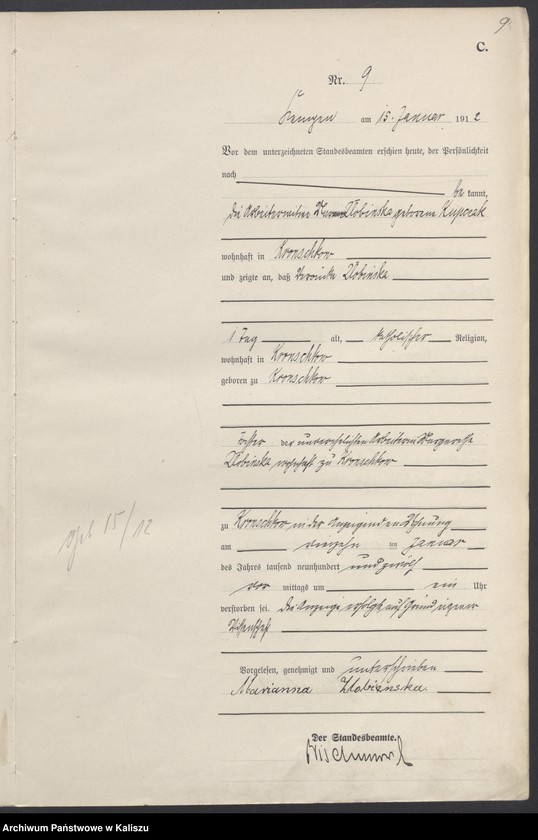 9.
C.
Nr. 9
Kempen am 15. Januar 1912
Vor dem unterzeichneten Standesbeamten erschien heute, der Persönlichkeit
nach
be kannt,
die Arbeiterwitwe Zlobinska geborene Kupczak
wohnhaft in Kronschkow
und zeigte an, daß Veronika Zlobinska
1 Tag alt, katholischer Religion,
wohnhaft in Kronschkow
geboren zu Kronschkow
Tochter der unverehelichten Arbeiterin Margarethe
Zlobinska wohnhaft zu Kronschkow
zu Kronschkow in der Wohnung
am vierzehn ten Januar
des Jahres tausend neunhundert und zwölf
vor mittags um ein Uhr
verstorben sei. Die Anzeige erfolgt auf Grund eigener
Wissenschaft
Vorgelesen, genehmigt und unterschrieben
Marianna Zlobienska
Der Standesbeamte.
15/12
Archiwum Państwowe w Kaliszu